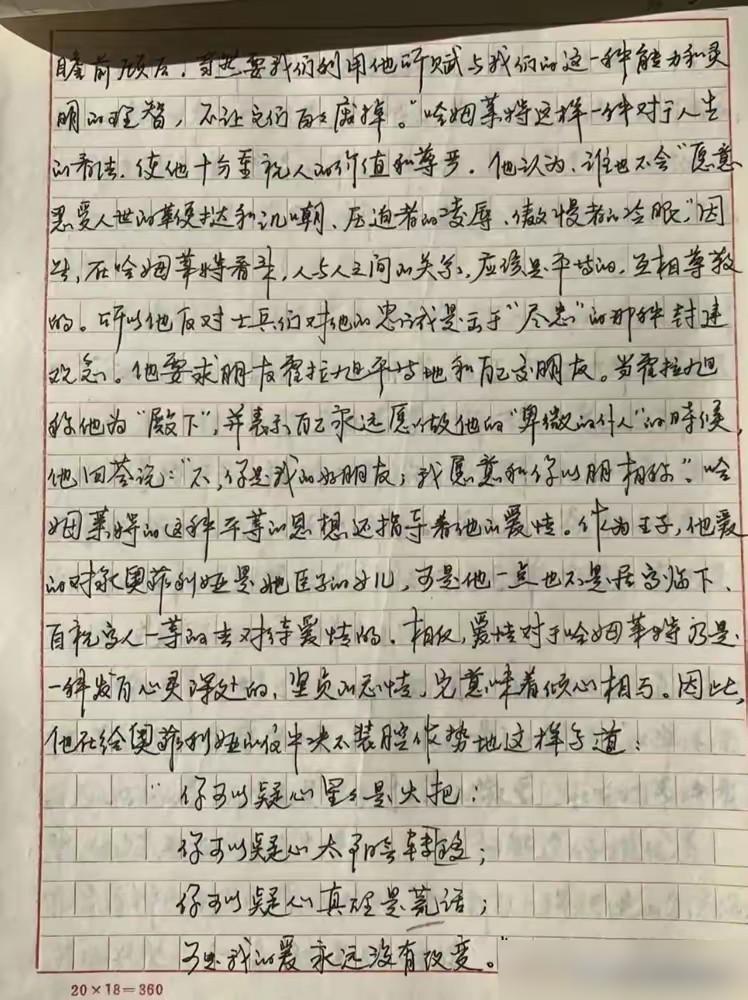 瞻前顾后,当然要我们利用他所赋与我们的这一种能力和灵
明的理智,不让它们白白废掉。”哈姆莱特这样一种对于人生
的看法,使他十分重视人的价值和尊严。他认为,谁也不会“愿意
忍受人世的鞭挞和讥嘲、压迫者的凌辱、傲慢者的冷眼”,因
此,在哈姆莱特看来,人与人之间的关系,应该是平等的,互相尊敬
的。所以他反对士兵们对他的忠诚是出于“尽忠”的那种封建
观念。他要求朋友霍拉旭平等地和自己交朋友。当霍拉旭
称他为“殿下”,并表示自己永远愿做他的“卑微的仆人”的时候,
他回答说:“不,你是我的好朋友;我愿意和你以朋相称”。哈
姆莱特的这种平等的思想还指导着他的爱情。作为王子,他爱
的对象奥菲利娅是她臣子的女儿,可是他一点也不是居高临下、
自视高人一等的去对待爱情的。相反,爱情对于哈姆莱特乃是
一种发自心灵深处的,坚贞的恋情,它意味着倾心相与。因此,
他在给奥菲利娅的信中决不装腔作势地这样写道:
“你可以疑心星星是火把;
你可以疑心太阳会转移;
你可以疑心真理是荒话;
可是我的爱永远没有改变。
20×18=360